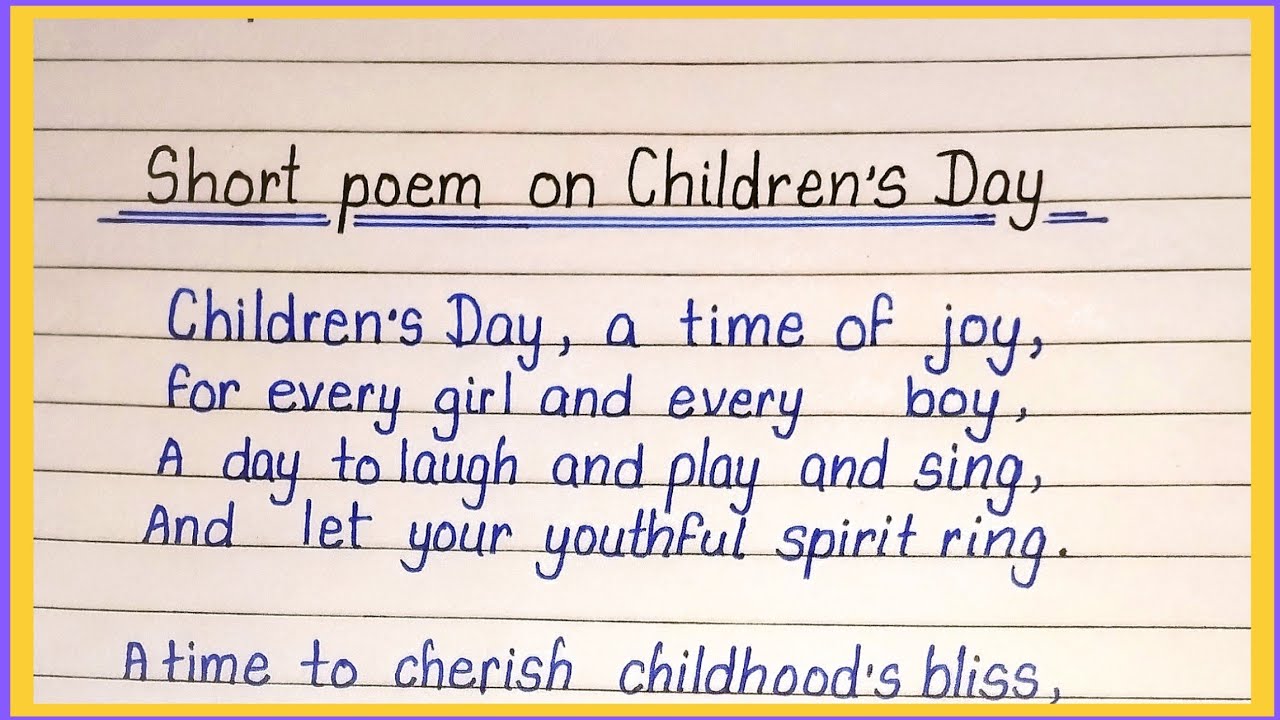 Short poem on Children's Day
Children's Day, a time of joy,
for every girl and every boy,
A day to laugh and play and sing,
And let your youthful spirit ring.
A time to cherish childhood's bliss,